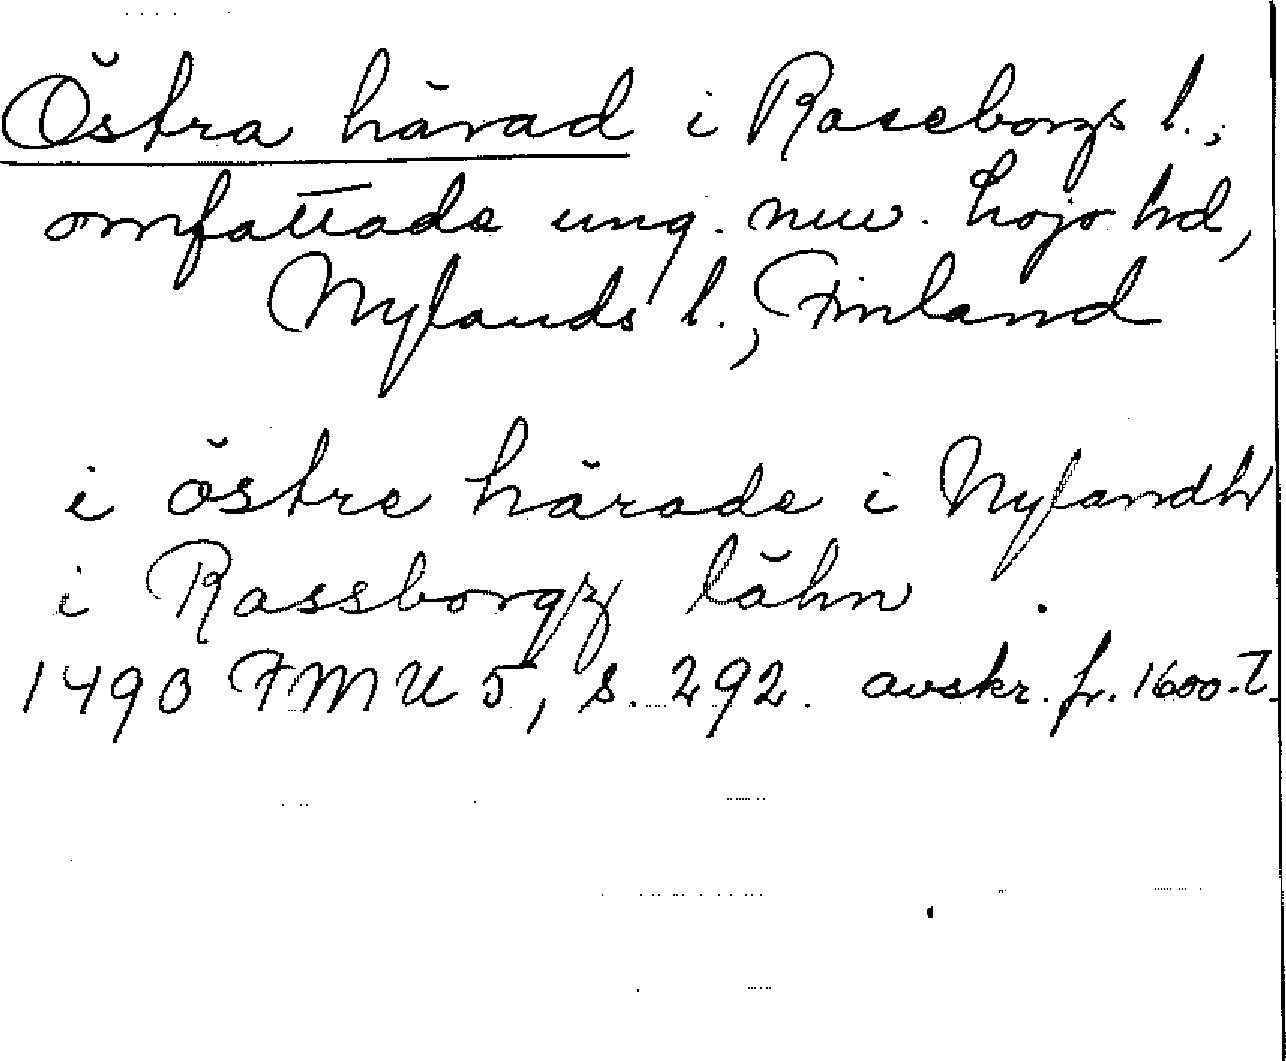 Östra härad i Raseborgs l.,
omfattade ung. nuv. Lojo hd,
Nylands l., Finland
i östre härade i Nylandh
i Rassborgz lähn .
1490 FMU 5, s. 292. avskr. fr. 1600-t.